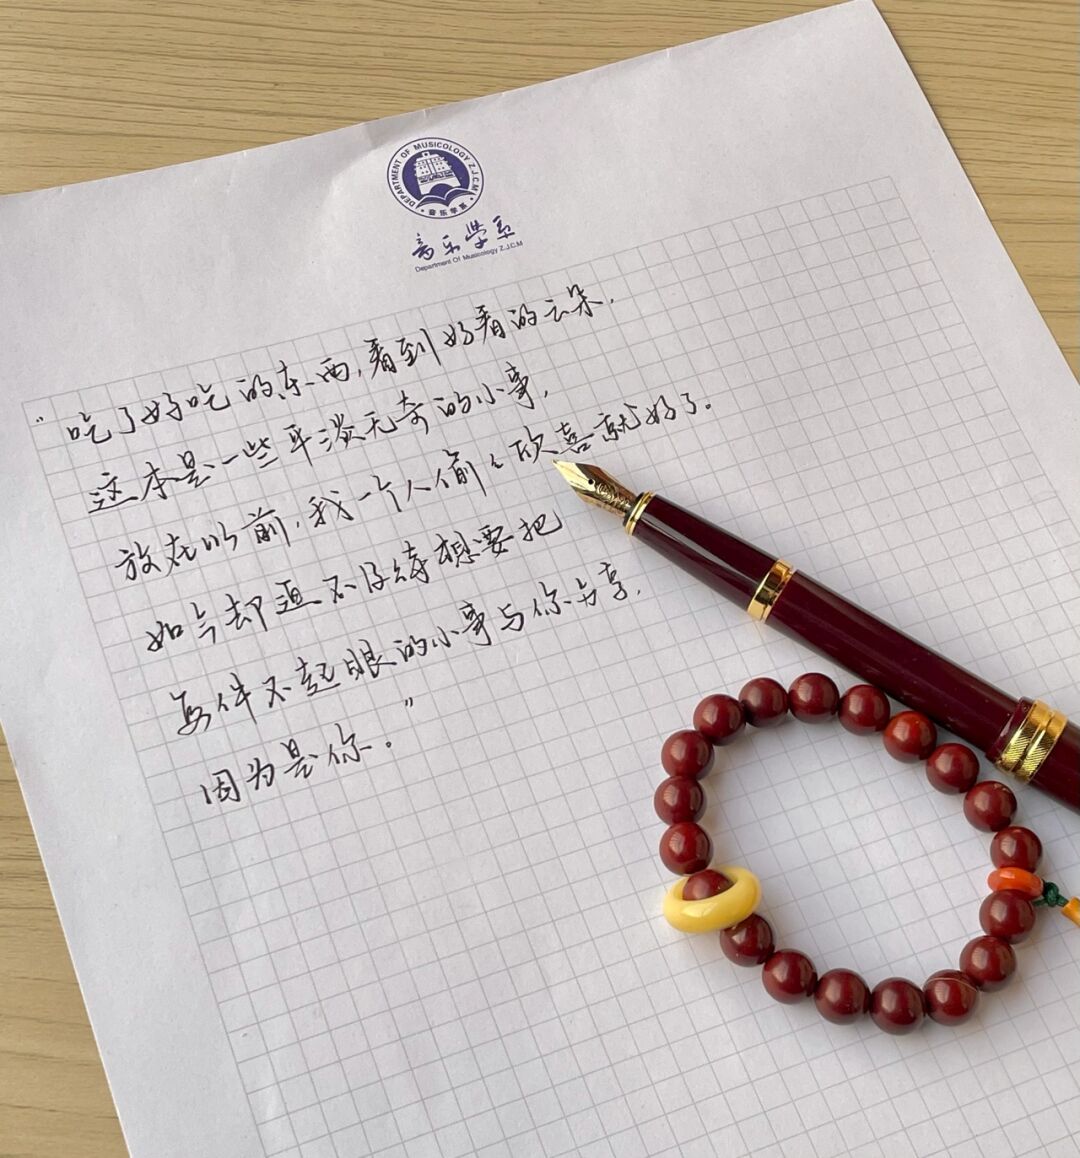 DEPARTMENT OF MUSICOLOGY Z.J.C.M
音乐学系
音乐学系
Department Of Musicology Z.J.C.M
“吃了好吃的东西,看到好看的云朵,
这本是一些平淡无奇的小事,
放在以前,我一个人偷々欣喜就好了。
如今却迫不及待想要把
每件不起眼的小事与你分享,
因为是你。”